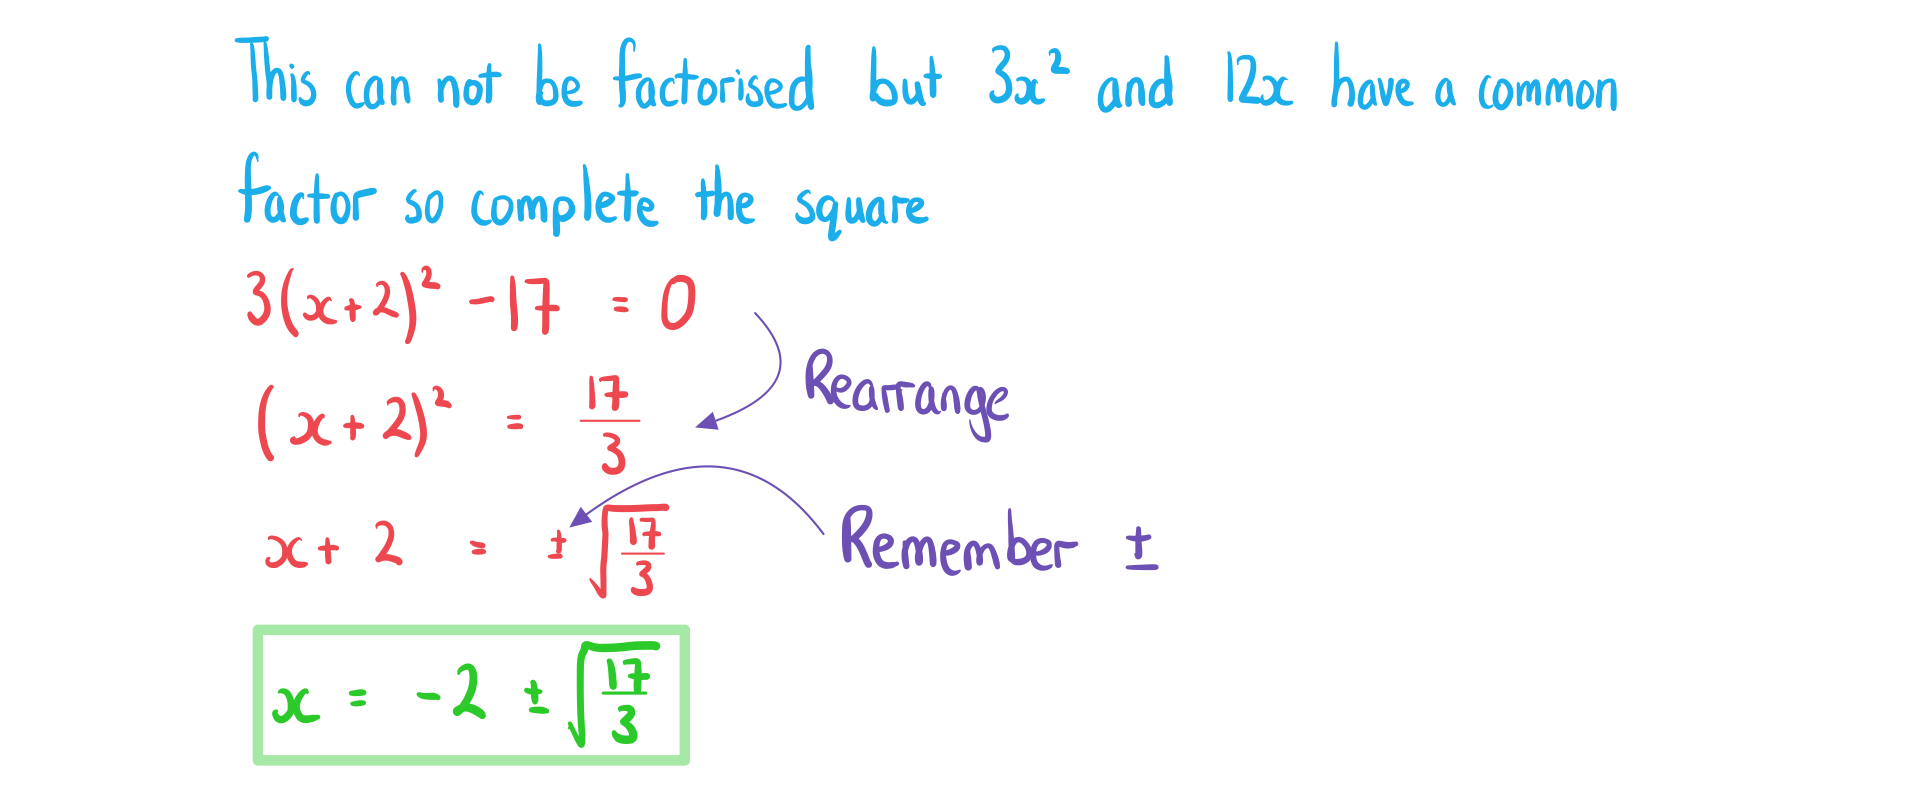 This can not be factorised but 3x² and 12x have a common
factor so complete the square
3(x+2)² - 17 = 0
Rearrange
(x+2)² = 17/3
x + 2 = ±√(17/3)
Remember ±
x = -2 ± √(17/3)